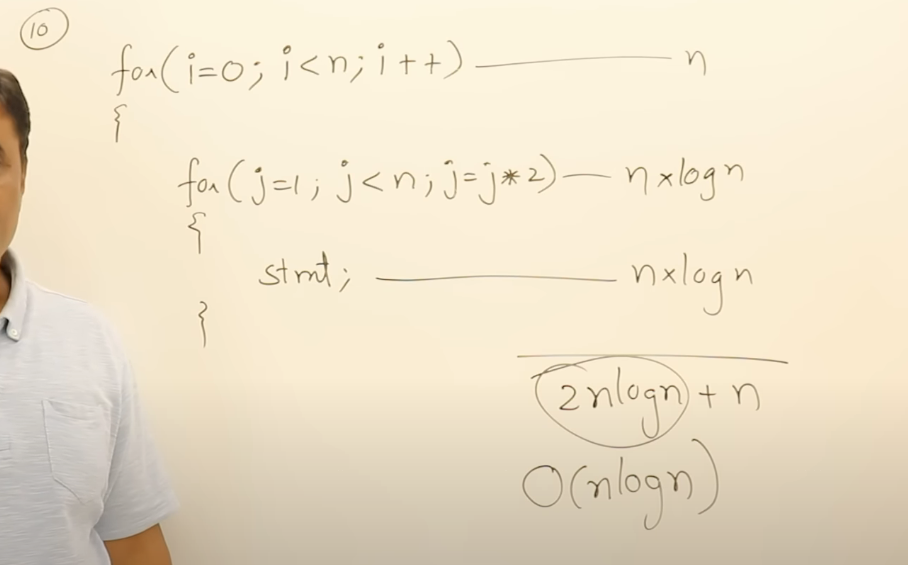 10
for(i=0; i<n; i++) n
{
for(j=1; j<n; j=j*2) n×logn
{
stmt; n×logn
}
2nlogn + n
O(nlogn)